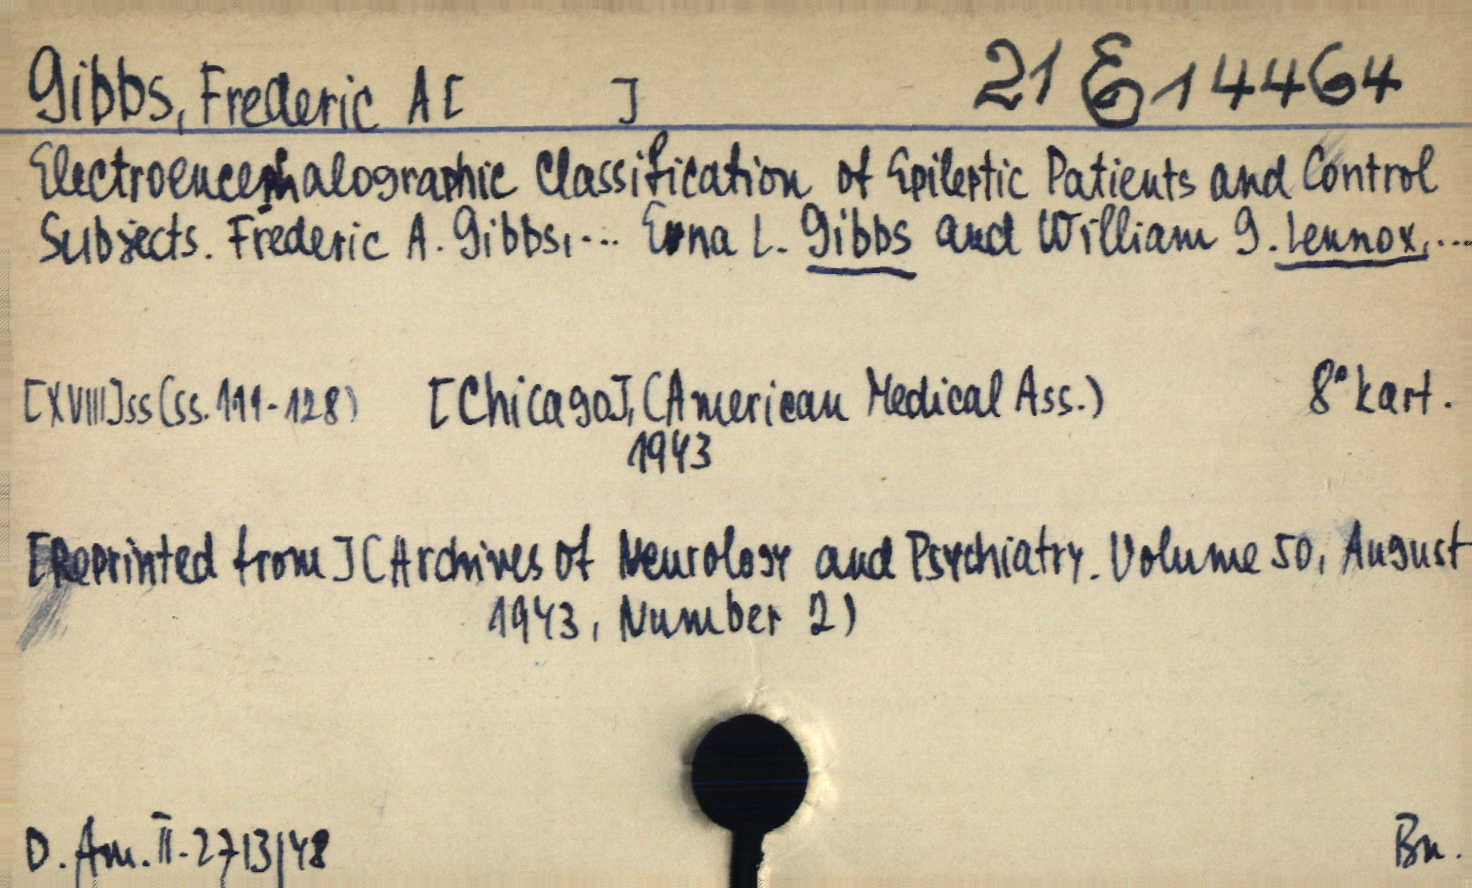 Gibbs, Frederic A[ ] 21 E 14464
Electroencephalographic Classification of Epileptic Patients and Control
Subjects. Frederic A. Gibbs,... Erna L. Gibbs and William G. Lennox,...
[XVIII]ss(ss. 111-128) [Chicago], (American Medical Ass.) 8° kart.
1943
[Reprinted from] (Archives of Neurology and Psychiatry. Volume 50, August
1943, Number 2)
D. Am. II-2713/48 Bn.